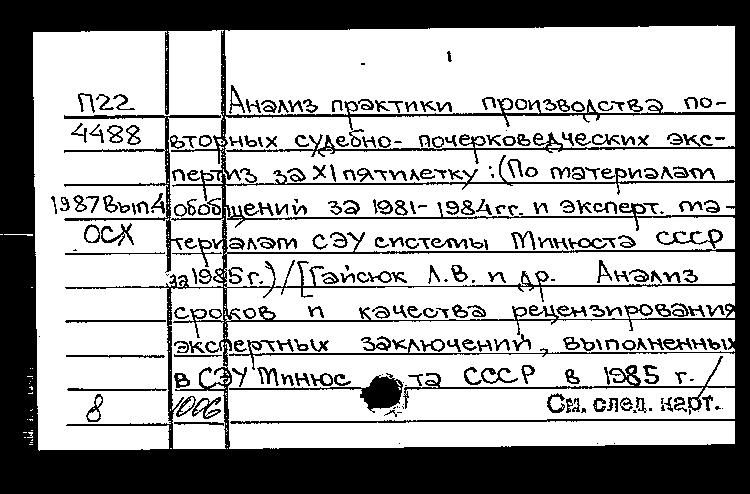 1
П22 Анализ практики производства по-
4488 вторных судебно-почерковедческих экс-
пертиз за XI пятилетку: (По материалам
1987 Вып.4 обобщений за 1981-1984гг. и эксперт. ма-
ОСХ териалам СЭУ системы Минюста СССР
за 1985г.)/[Гайсюк Л.В. и др. Анализ
сроков и качества рецензирования
экспертных заключений, выполненных
в СЭУ Минюста СССР в 1985 г./
8 См. след. карт.